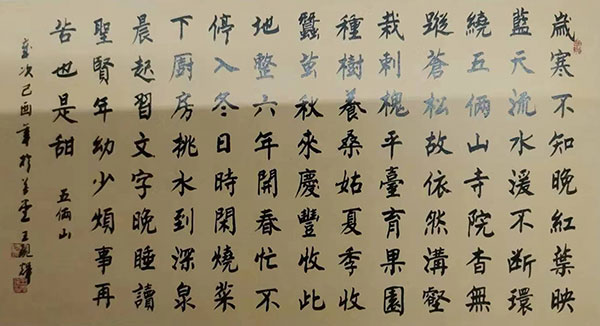 歲寒不知晚紅葉映
藍天流水湲不斷環
繞五俩山寺院杳無
蹤蒼松故依然溝壑
栽刺槐平臺育果園
種樹養桑姑夏季收
蠶茧秋來慶豐收此
地整六年開春忙不
停入冬日時閑燒菜
下厨房挑水到深泉
晨起習文字晚睡讀
聖賢年幼少煩事再
苦也是甜 五俩山
歲次己酉年於